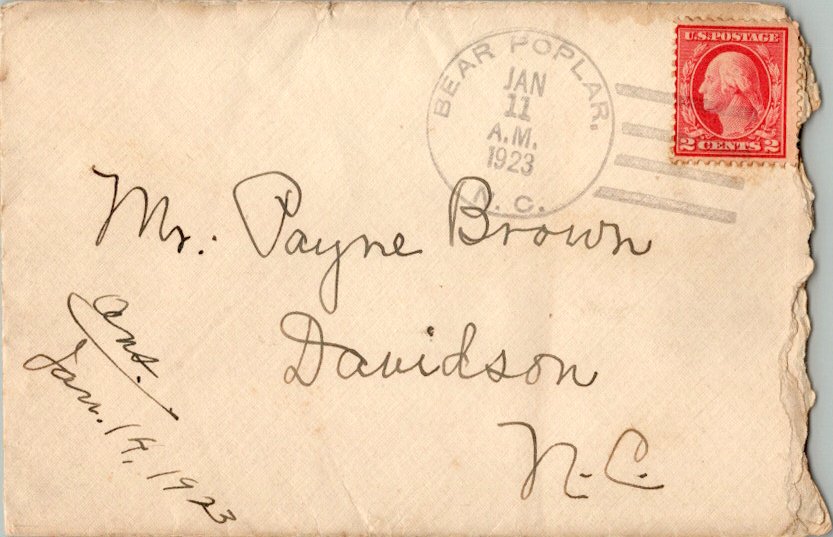 BEAR POPLAR.
JAN
11
A.M.
1923
N. C.
U.S. POSTAGE
2 CENTS 2
Mr. Payne Brown
Davidson
N.C.
Ans.
Jan. 14, 1923